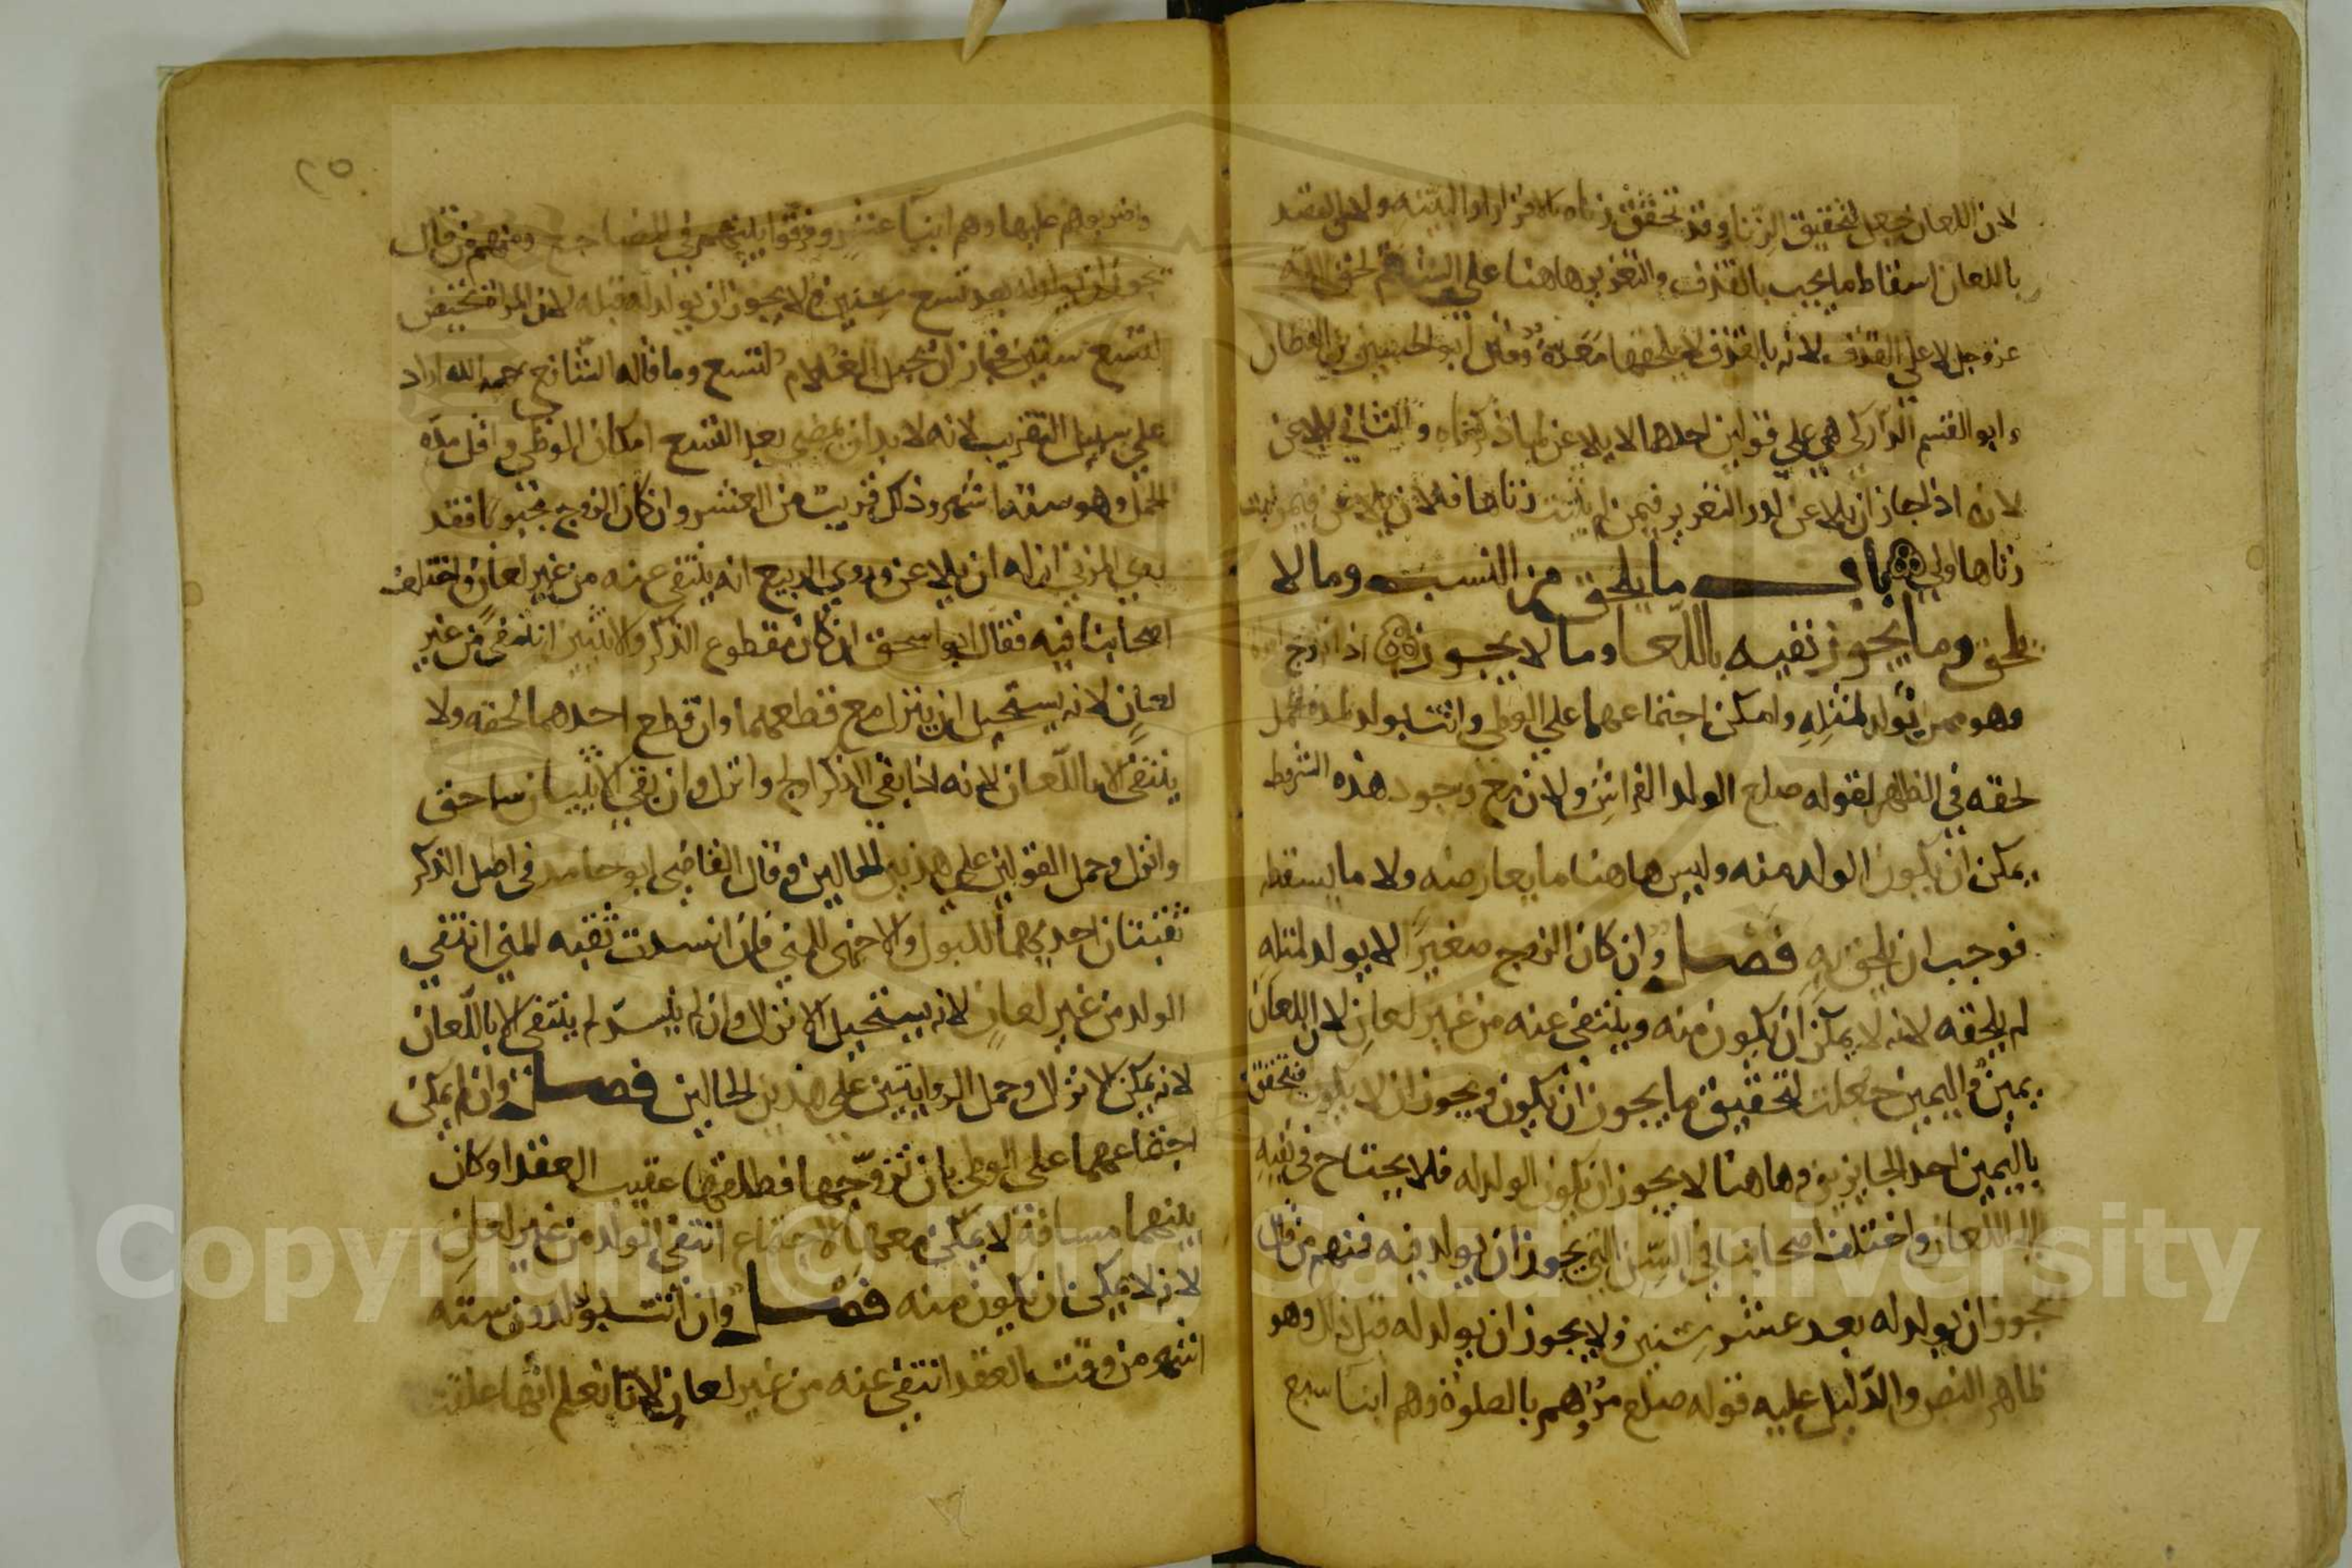 لان اللعان جعل لتحقيق الزنا وقد تحقق زناه بالاقرار او البينة ولان القصد
باللعان اسقاط ما يجب بالقذف والتعزير هاهنا على الشتم لحق الله
عز وجل لا على القذف لانه بالقذف لم يلحقها معرة وقال ابو الحسين بن القطان
وابو القسم الداركي هي على قولين احدهما لا يلاعن لما ذكرناه والثاني يلاعن
لانه اذا جاز ان يلاعن لدرء التعزير فيمن لم يثبت زناها فلان يلاعن فيمن ثبت
زناها اولى باب ما يلحق من النسب وما لا
يلحق وما يجوز نفيه باللعان وما لا يجوز اذا تزوج امراة
وهو ممن يولد لمثله وامكن اجتماعهما على الوطي واتت بولد لمدة الحمل
لحقه في الظاهر لقوله صلع الولد للفراش ولان مع وجود هذه الشروط
يمكن ان يكون الولد منه وليس هاهنا ما يعارضه ولا ما يسقطه
فوجب ان يلحق به فصل وان كان الزوج صغيرا لا يولد لمثله
لم يلحقه لانه لا يمكن ان يكون منه وينتفي عنه من غير لعان لان اللعان
يمين واليمين جعلت لتحقيق ما يجوز ان يكون ويجوز ان لا يكون فيتحقق
باليمين احد الجايزين وهاهنا لا يجوز ان يكون الولد له فلا يحتاج في نفيه
الى اللعان واختلف اصحابنا في السن التي يجوز ان يولد فيه فمنهم من قال
يجوز ان يولد له بعد عشر سنين ولا يجوز ان يولد له قبل ذلك وهو
ظاهر النص والدليل عليه قوله صلع مروهم بالصلوة وهم ابنا سبع
٢٥
واضربوهم عليها وهم ابنا عشر وفرقوا بينهم في المضاجع ومنهم من قال
يجوز ان يولد له بعد تسع سنين ولا يجوز ان يولد له قبله لان المراة تحيض
لتسع سنين فجاز ان يحبل الغلام لتسع وما قاله الشافعي رحمه الله اراد
على سبيل التقريب لانه لا بد ان يمضي بعد التسع امكان الوطي واقل مدة
الحمل وهو ستة اشهر وذلك قريب من العشر وان كان الزوج مجبوبا فقد
روى المزني ان له ان يلاعن وروى الربيع انه ينتفي عنه من غير لعان واختلف
اصحابنا فيه فقال ابو اسحق ان كان مقطوع الذكر والانثيين انتفى من غير
لعان لانه يستحيل ان ينزل مع قطعهما وان قطع احدهما لحقه ولا
ينتفي الا باللعان لانه اذا بقي الذكر اولج وانزل وان بقي الانثيان ساحق
وانزل وحمل القولين على هذين الحالين وقال القاضي ابو حامد في اصل الذكر
ثقبتان احديهما للبول والاخرى للمني فان انسدت ثقبه المني انتفى
الولد من غير لعان لانه يستحيل الانزال وان لم ينسد لم ينتفي الا باللعان
لانه يمكن الانزال وحمل الروايتين على هذين الحالين فصل وان لم يمكن
اجتماعهما على الوطي بان تزوجها فطلقها عقيب العقد او كان
بينهما مسافة لا يمكن معها الاجتماع انتفى الولد من غير لعان
لانه لا يمكن ان يكون منه فصل وان اتت بولد لدون ستة
اشهر من وقت العقد انتفى عنه من غير لعان لانا نعلم انها علقت
Copyright © King Saud University